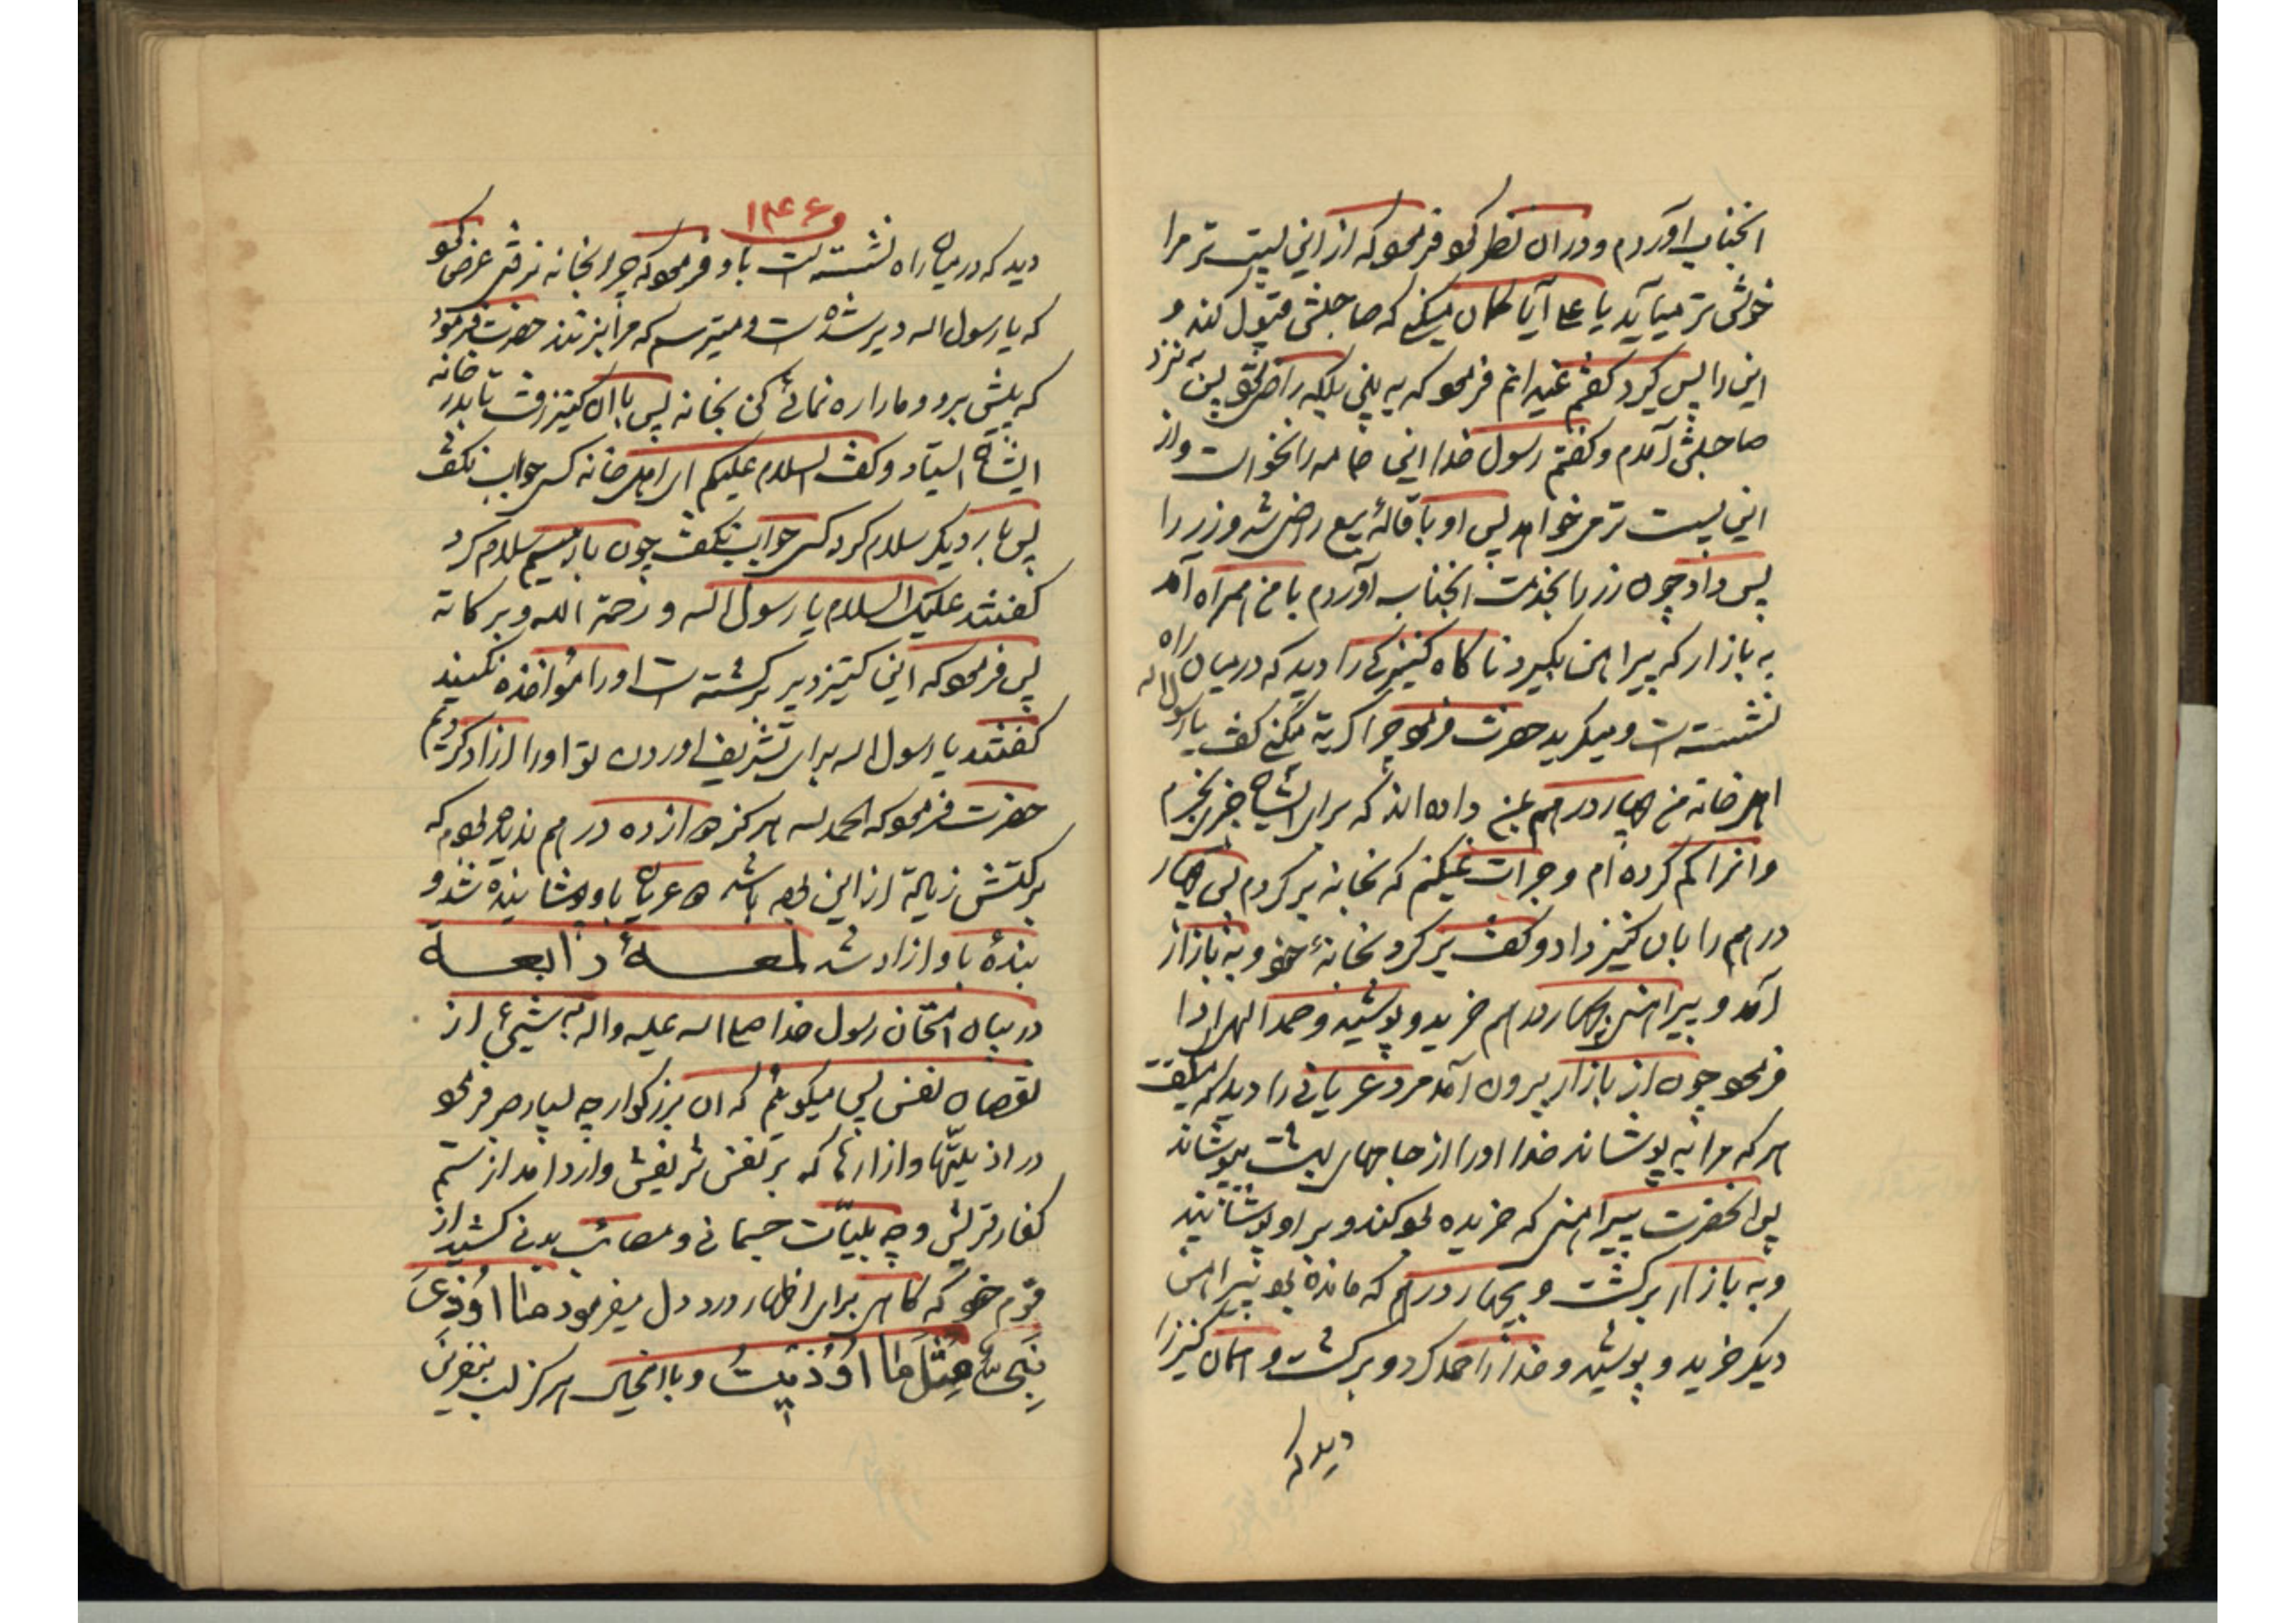 انجناب آوردم و در ان نظر کرد فرمود که از این پست تر مرا
خوش تر میآید یا علی آیا کمان میکنی که صاحبش قبول کند و
این را پس کیرد کفتم نمیدانم فرمود که به بین بلکه راضی شود پس به نزد
صاحبش آمدم و کفتم رسول خدا این جامه را نخواست و از
این پست تر می خواهد پس او باقالهٔ بیع راضی شد و زر را
پس داد چون زر را بخدمت انجناب آوردم با من همراه آمد
به بازار که پیراهن بکیرد ناکاه کنیزکی را دید که در میان راه
نشسته است و میکرید حضرت فرمود چرا کریه میکنی کفت یا رسول اله
اهل خانه من چهار درهم بمن داده اند که برای ایشان چیزی بخرم
و انرا کم کرده ام و جرات نمیکنم که بخانه بر کردم پس چهار
درهم را بان کنیز داد و کفت بر کرد بخانهٔ خود و به بازار
آمد و پیراهنی بچهار درهم خرید و پوشید و حمد الهی ادا
فرمود چون از بازار بیرون آمد مرد عریانی را دید که میکفت
هر که مرا به پوشاند خدا او را از جامهای بهشت بپوشاند
پس انحضرت پیراهنی که خریده بود کند و بر او پوشانید
و به بازار برکشت و بچهار درهم که مانده بود پیراهن
دیکر خرید و پوشید و خدا را حمد کرد و برکشت و همان کنیز را
دید که
۱۴۶
دید که در میان راه نشسته است باو فرمود که چرا بخانه نرفتی عرض کرد
که یا رسول اله دیر شده است و میترسم که مرا بزنند حضرت فرمود
که پیش برو و ما را راه نمائی کن بخانه پس با ان کنیز رفت تا بدر خانه
ایشان ایستاد و کفت السلام علیکم ای اهل خانه کسی جواب نکفت
پس بار دیکر سلام کرد کسی جواب نکفت چون بار سیم سلام کرد
کفتند علیک السلام یا رسول اله و رحمة الله و برکاته
پس فرمود که این کنیز دیر برکشته است او را مؤاخذه نکنید
کفتند یا رسول اله برای تشریف اوردن تو او را ازاد کردیم
حضرت فرمود که الحمد لله هرکز دوازده درهم ندیده بودم که
برکتش زیاده از این بوده باشد دو عریان باو پوشانیده شد و
بندهٔ باو ازاد شد لمعـــهٔ رابعـــة
در بیان امتحان رسول خدا صلی اله علیه و اله به شیئی از
نقصان نفس پس میکویم که ان بزرکوار چه بسیار صبر فرمود
در اذیتها و ازارها که بر نفس شریفش وارد امد از ستم
کفار قریش و چه بلیات جسمانی و مصائب بدنی کشید از
قوم خود که کاهی برای اظهار درد دل میفرمود ما اُوذیَ
نبیٌّ مِثلَ ما اُوذیتُ و با انحال هرکز لب بنفرین